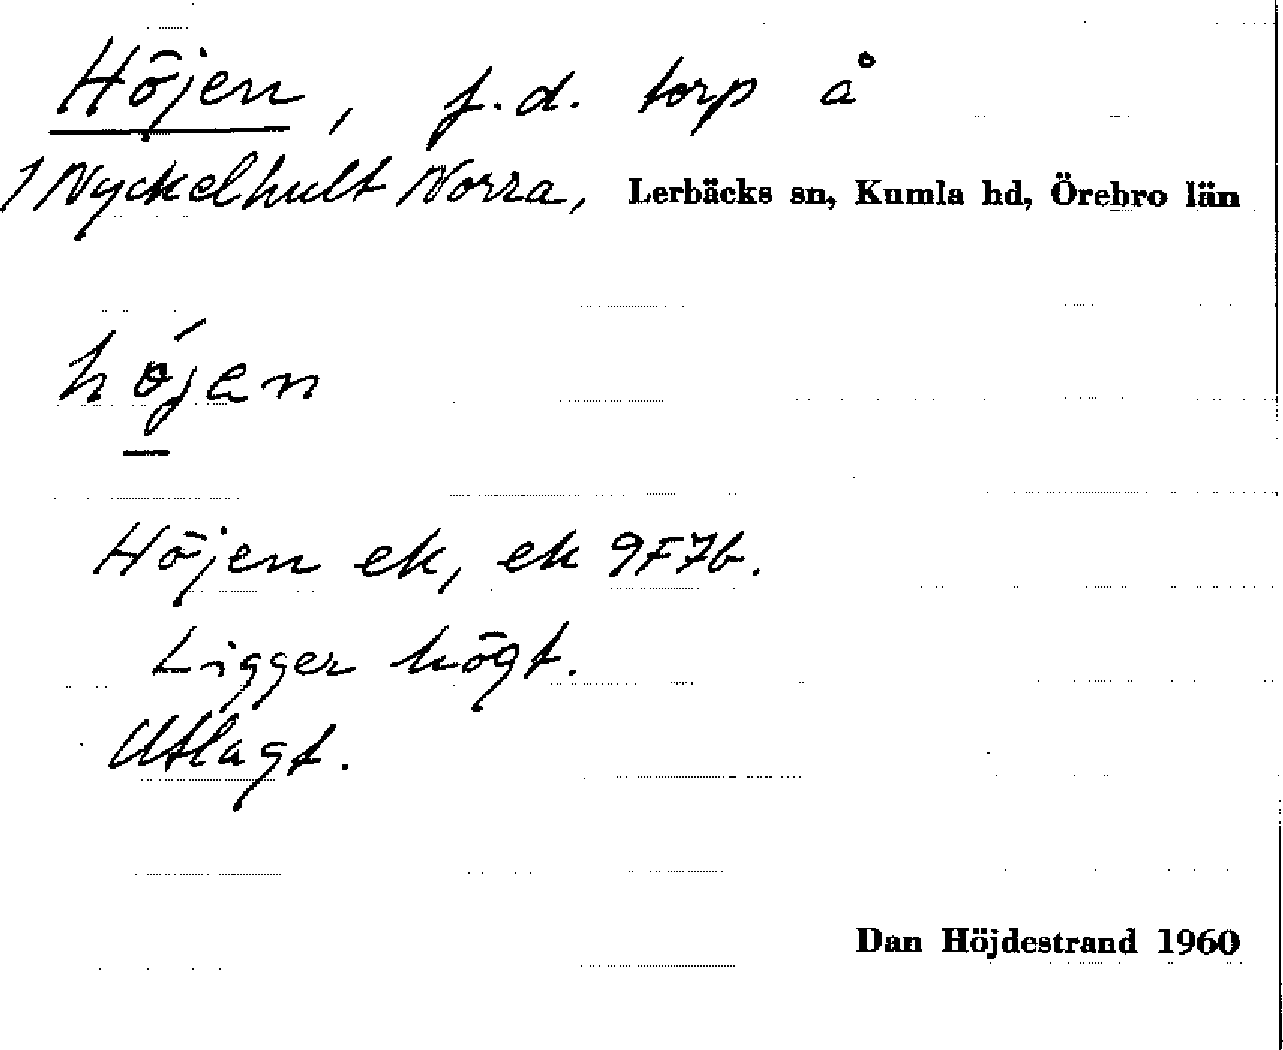 Höjen, f.d. torp å
1 Nyckelhult Norra, Lerbäcks sn, Kumla hd, Örebro län
höjen
Höjen ek, ek 9F7b.
Ligger högt.
Utlagt.
Dan Höjdestrand 1960